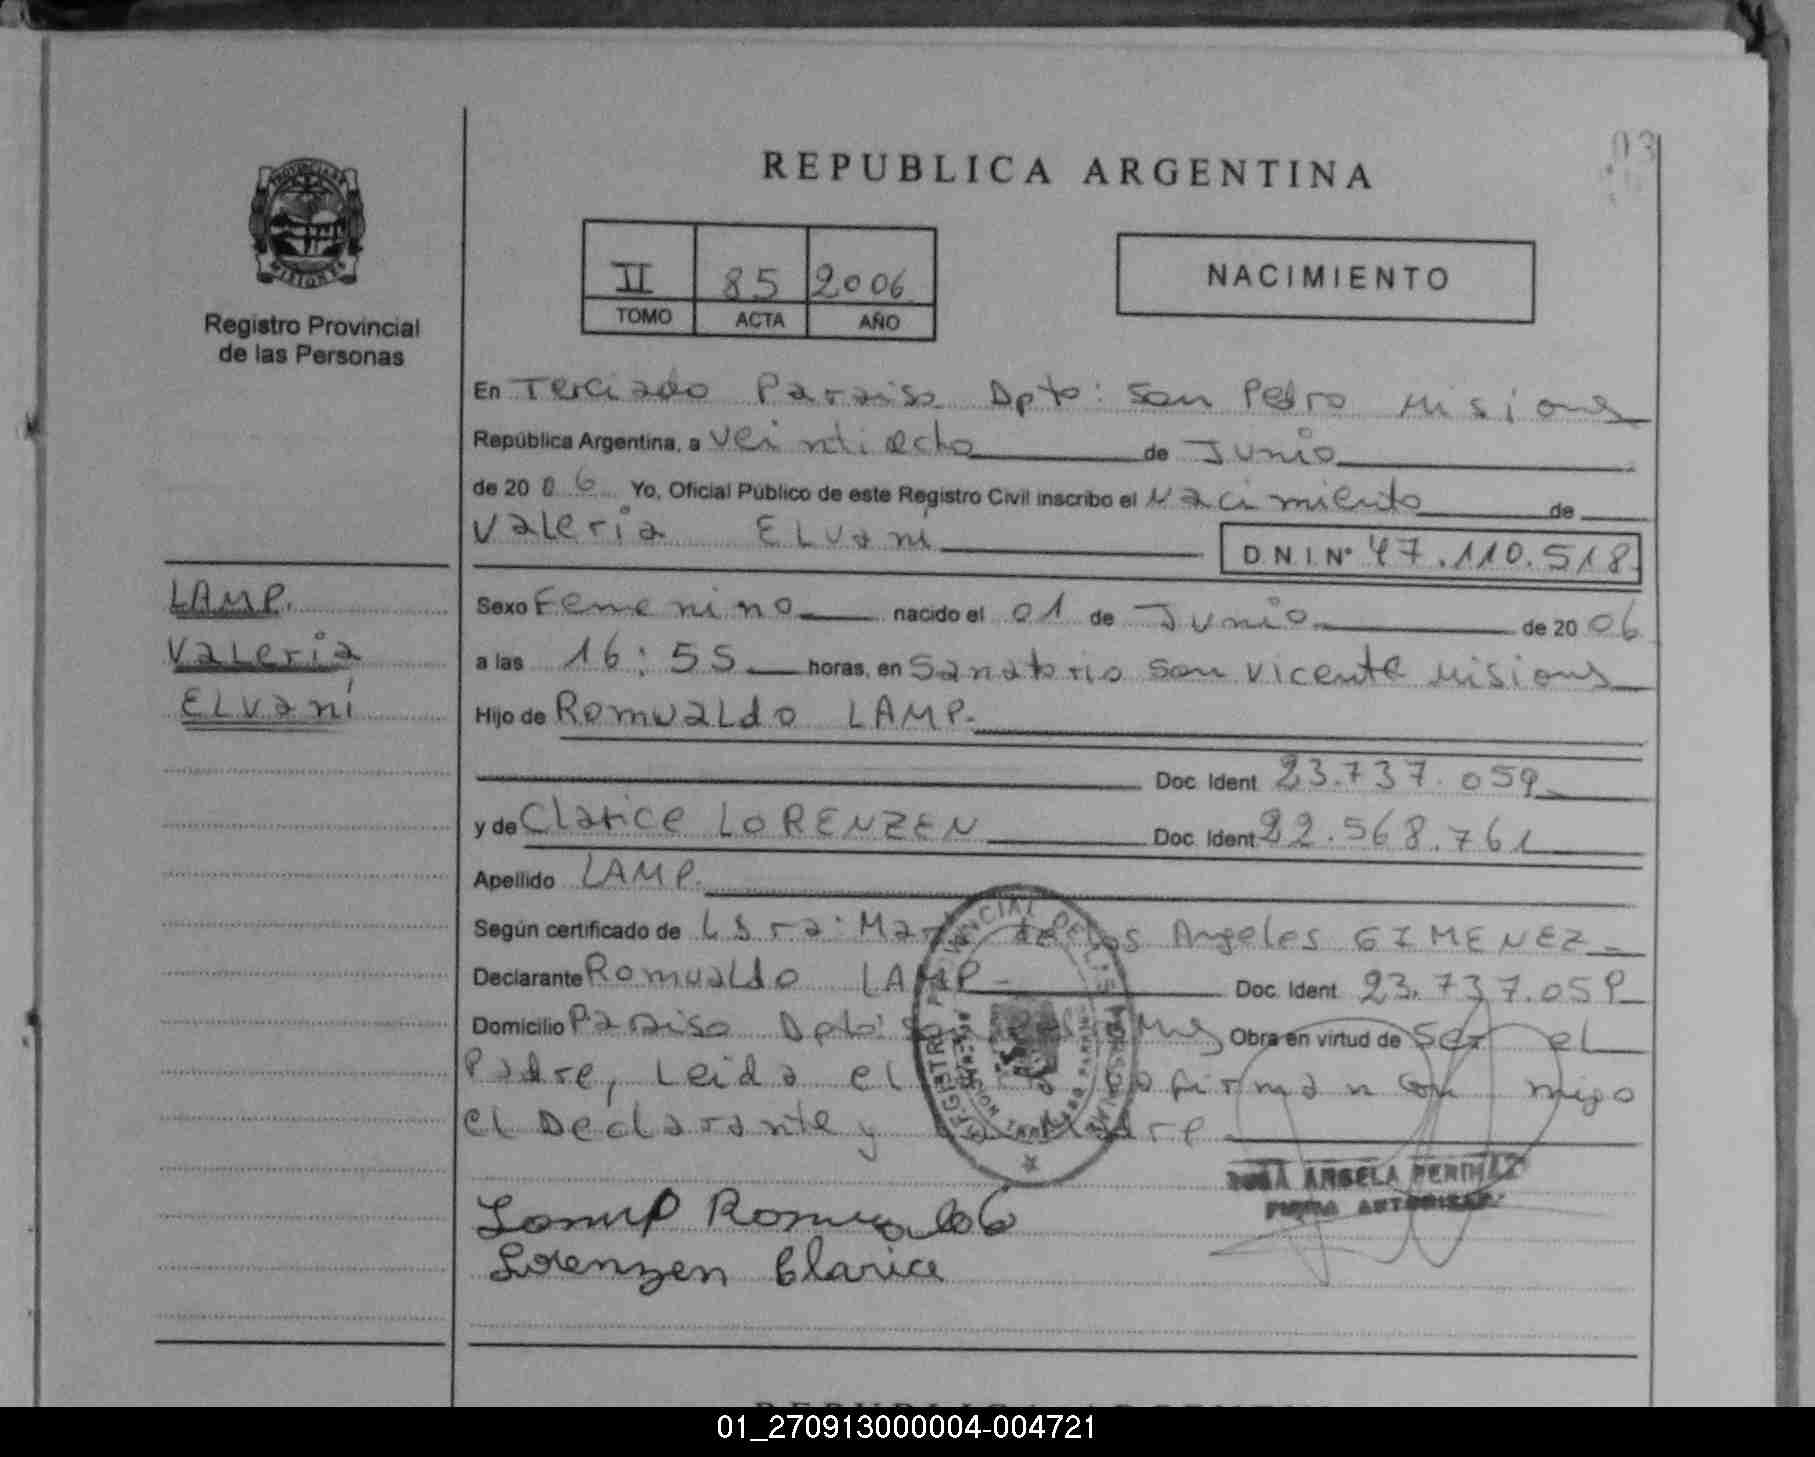 03
REPUBLICA ARGENTINA
PROVINCIA DE
MISIONES
Registro Provincial
de las Personas
II 85 2006
TOMO ACTA AÑO
NACIMIENTO
En Terciado Paraiso Dpto: San Pedro Misiones
República Argentina, a Veintiocho de Junio
de 20 06 Yo, Oficial Público de este Registro Civil inscribo el Nacimiento de
Valeria ELvani
D.N.I. Nº 47.110.518
LAMP.
Valeria
ELvani
Sexo Femenino nacido el 01 de Junio de 20 06
a las 16:55 horas, en Sanatorio San Vicente Misiones
Hijo de Romualdo LAMP.
Doc. Ident. 23.737.059
y de Clarice LORENZEN Doc. Ident. 22.568.761
Apellido LAMP.
Según certificado de Maria de los Angeles GIMENEZ
Declarante Romualdo LAMP Doc. Ident. 23.737.059
Domicilio Paraiso Dpto: Obra en virtud de Ser el
Padre, Leida el firman con migo
el Declarante y
REGISTRO PROVINCIAL DE LAS PERSONAS
Lamp Romualdo
Lorenzen Clarice
ANGELA
FIRMA AUTORIZADA
REPUBLICA ARGENTINA
01_270913000004-004721